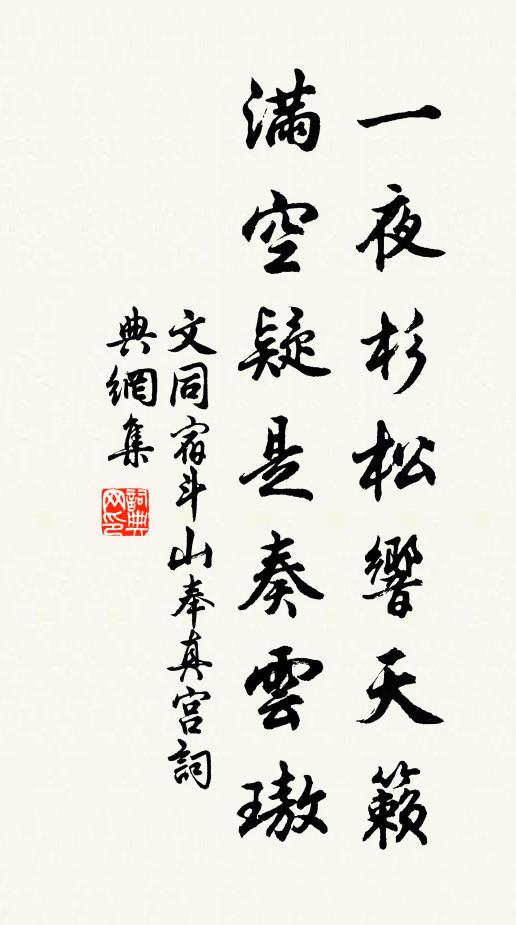 一夜杉松響天籟
滿空疑是奏雲璈
文同宿斗山奉真宮詞
典網集
詞典
网印